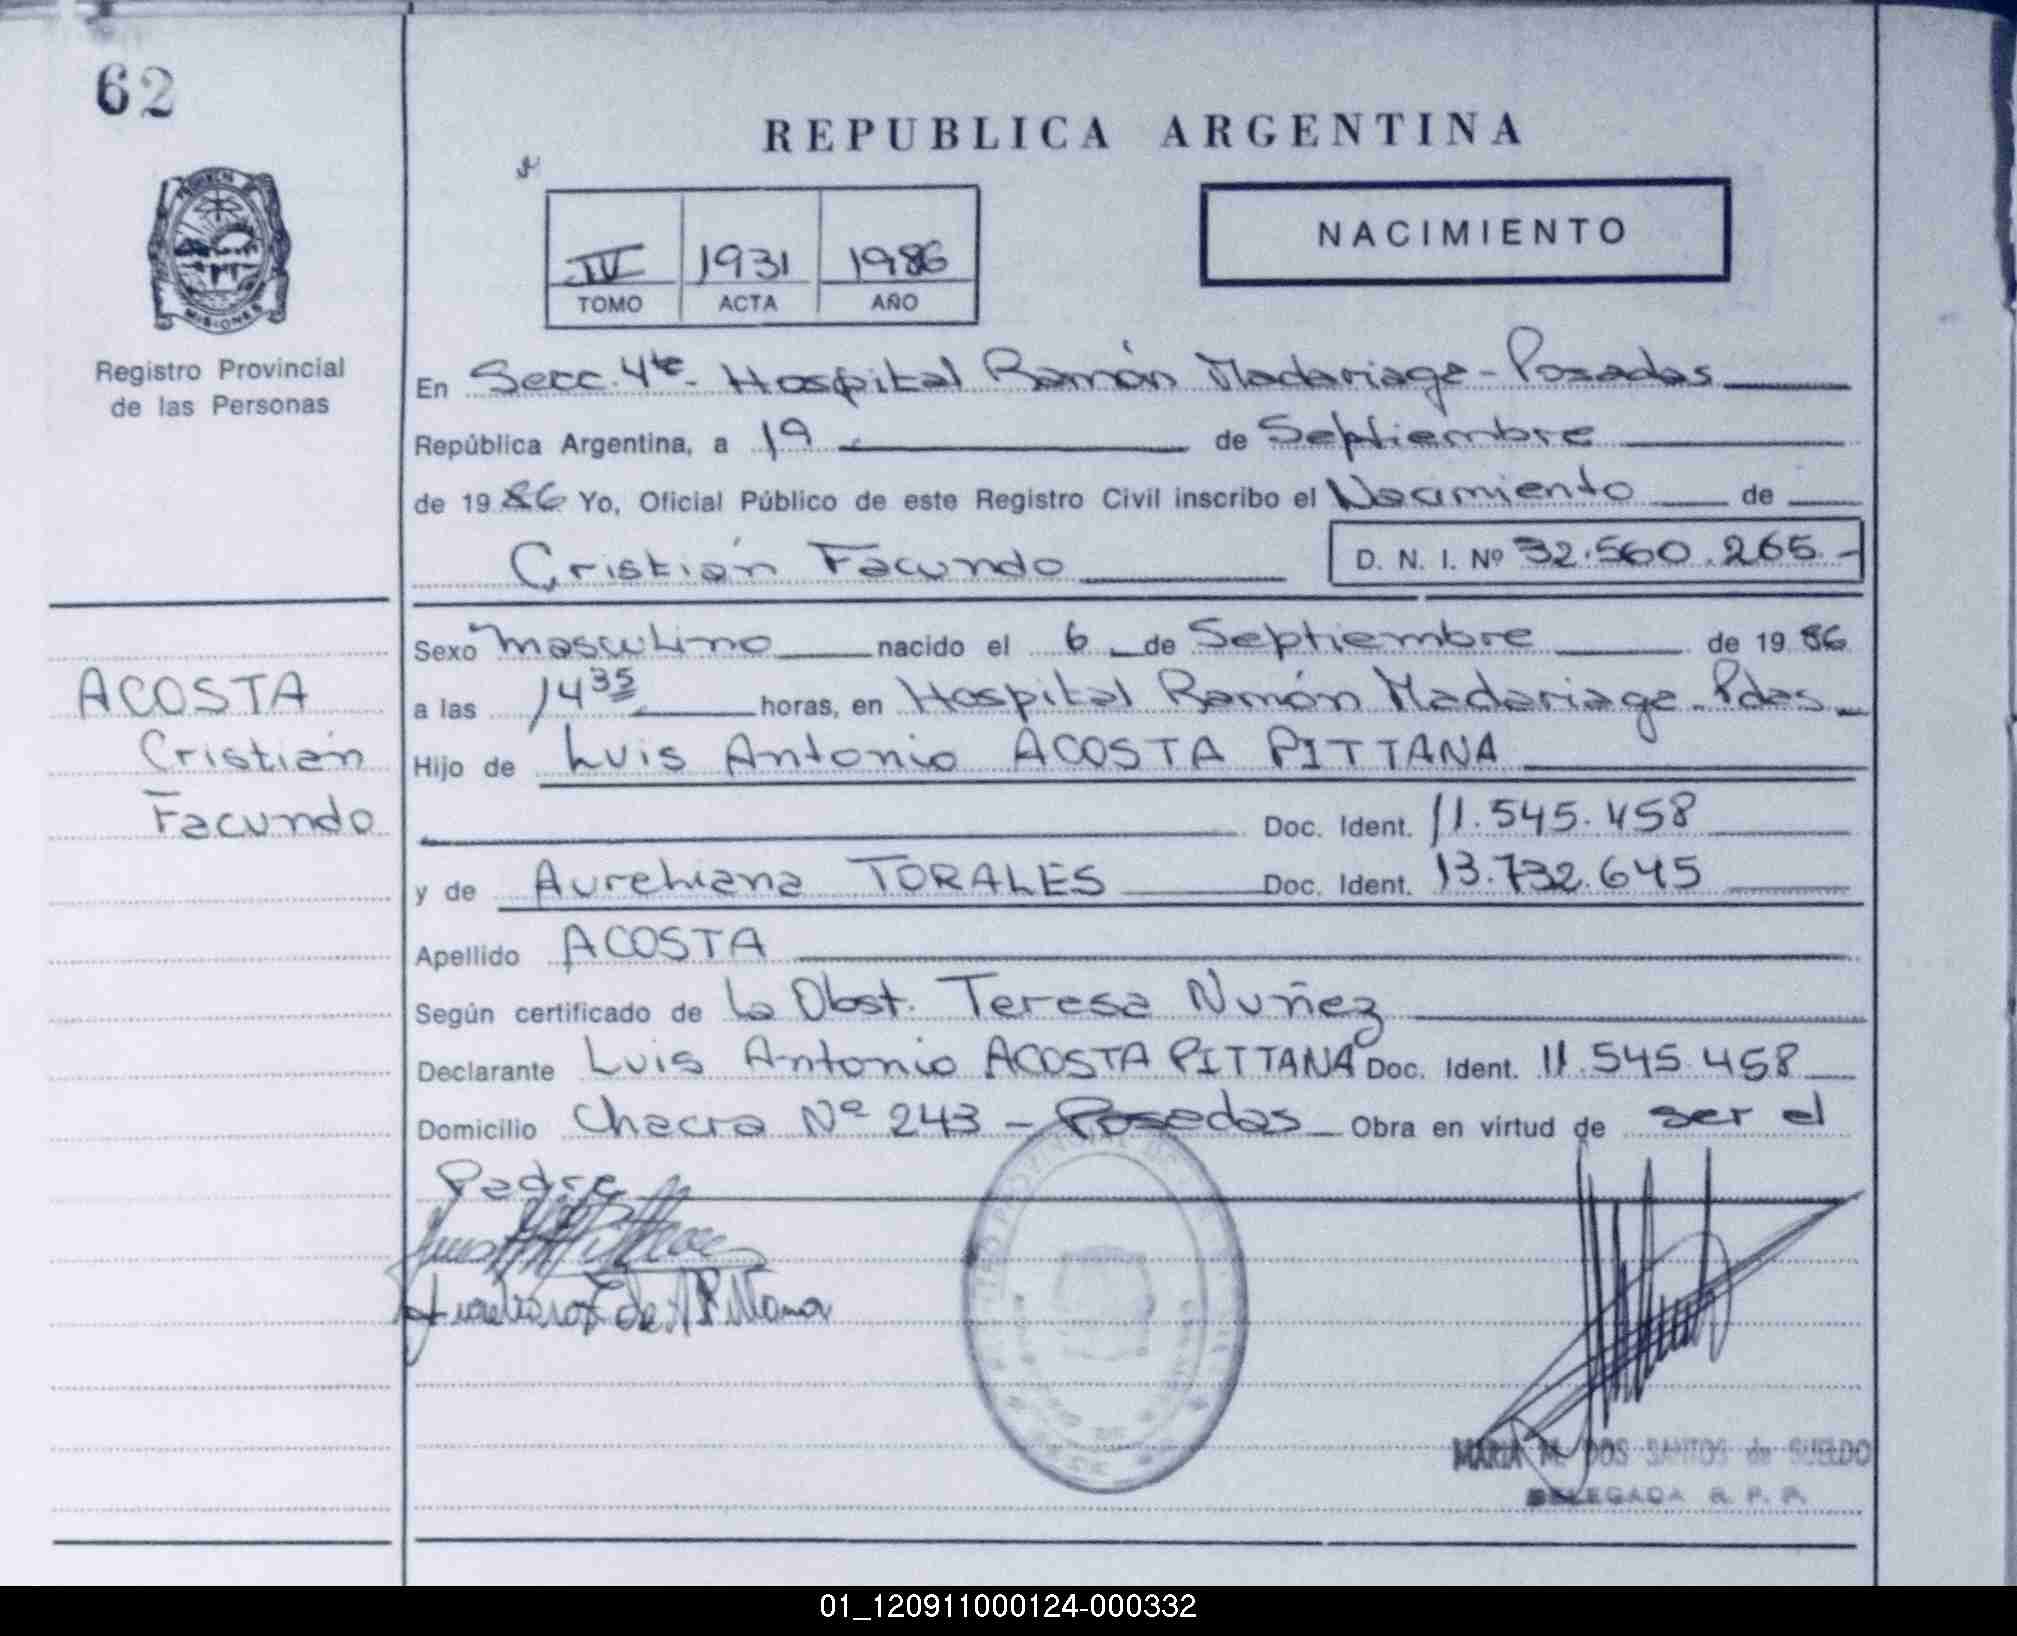 62
REPUBLICA ARGENTINA
NACIMIENTO
IV 1931 1986
TOMO ACTA AÑO
MISIONES
Registro Provincial
de las Personas
En Secc. 4te. Hospital Ramón Madariaga - Posadas
República Argentina, a 19 de Septiembre
de 1986 Yo, Oficial Público de este Registro Civil inscribo el Nacimiento de
Cristián Facundo D. N. I. Nº 32.560.265.-
Sexo Masculino nacido el 6 de Septiembre de 1986
a las 14 35 horas, en Hospital Ramón Madariaga - Pdas
Hijo de Luis Antonio ACOSTA PITTANA
Doc. Ident. 11.545.458
y de Aureliana TORALES Doc. Ident. 13.732.645
Apellido ACOSTA
Según certificado de la Obst. Teresa Nuñez
Declarante Luis Antonio ACOSTA PITTANA Doc. Ident. 11.545.458
Domicilio Chacra Nº 243 - Posadas Obra en virtud de ser el
Padre
ACOSTA
Cristián
Facundo
MARIA M. DOS SANTOS de SUELDO
DELEGADA R. P. P.
01_120911000124-000332